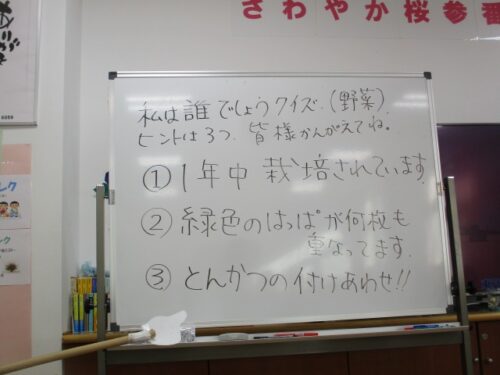 さわやか桜参
私は誰でしょうクイズ.(野菜)
ヒントは3つ. 皆様かんがえてね。
① 1年中 栽培されています.
② 緑色のはっぱが何枚も
重なってます.
③ とんかつの付けあわせ!!